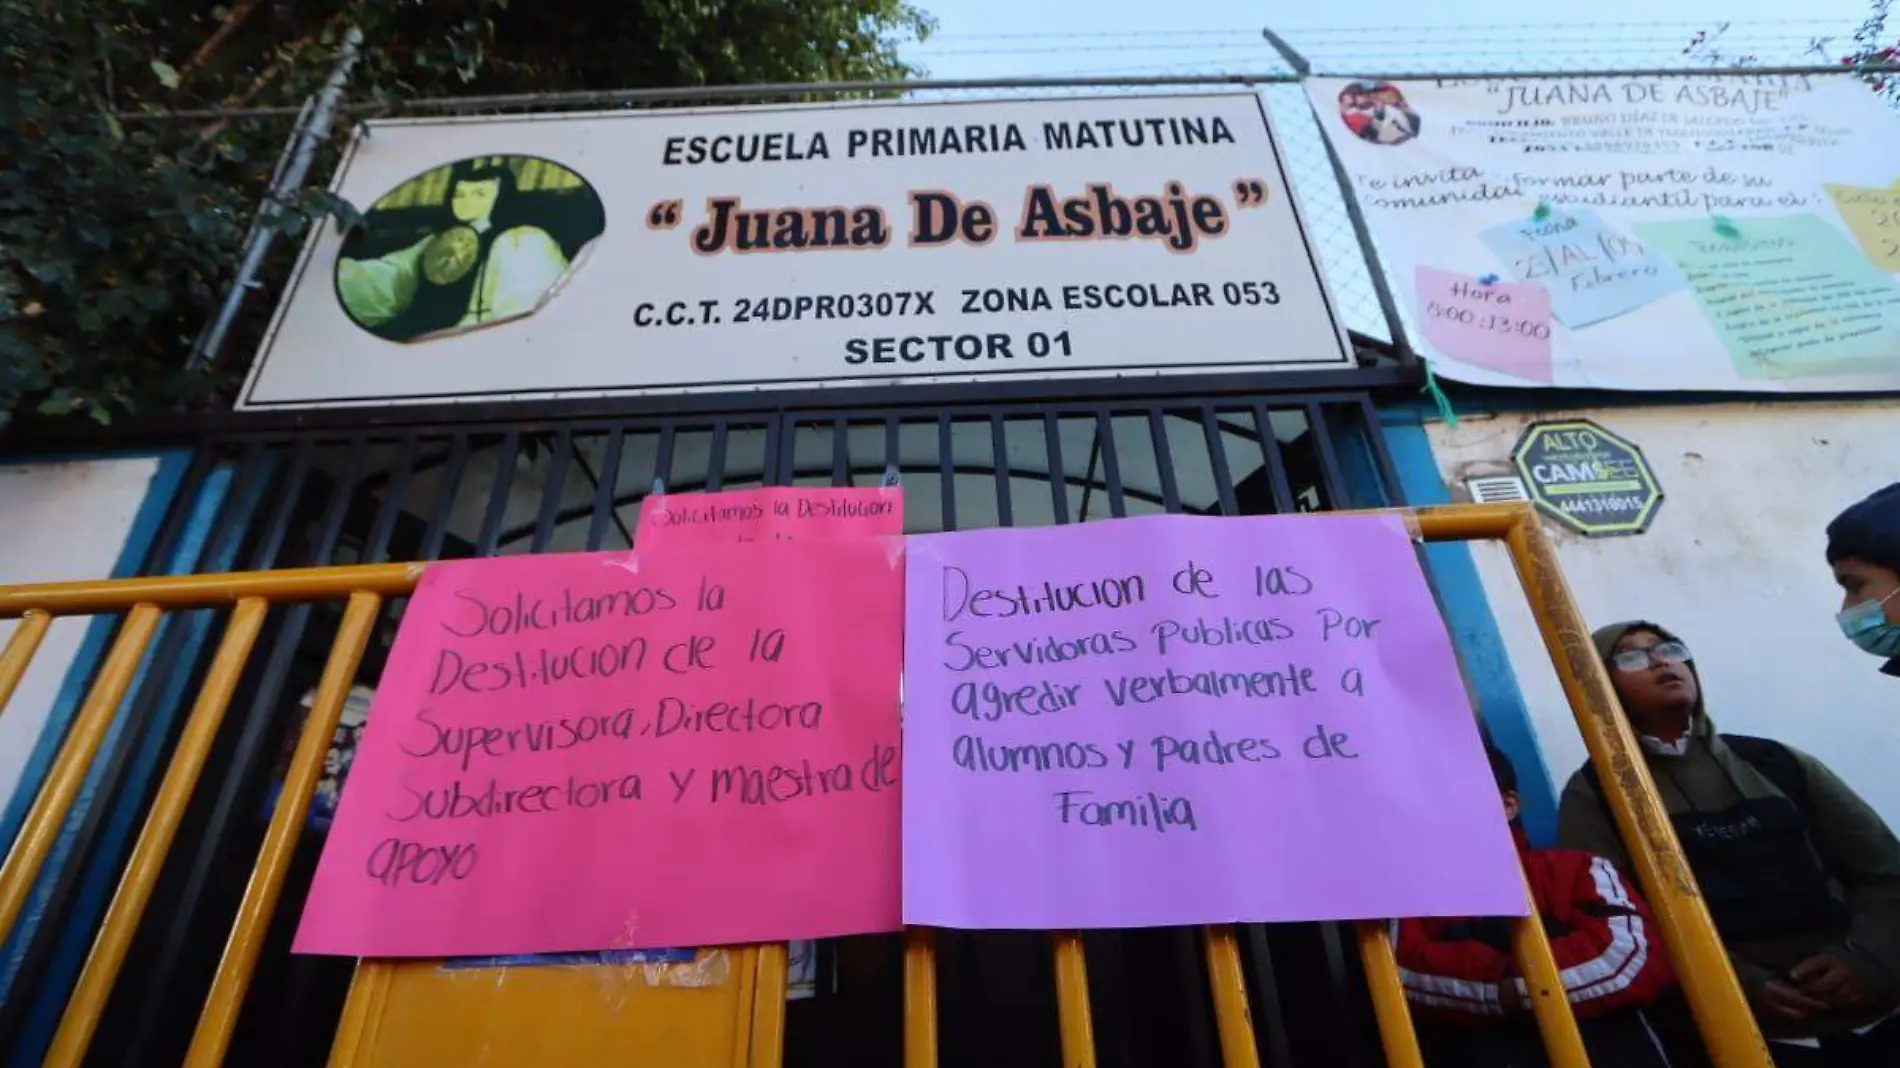 ESCUELA PRIMARIA MATUTINA
" Juana De Asbaje "
C.C.T. 24DPR0307X ZONA ESCOLAR 053
SECTOR 01
"JUANA DE ASBAJE"
BRUNO DÍAZ DE SALCEDO
e invita formar parte de su
comunidad estudiantil para el:
Fecha
Febrero
Hora
8:00:13:00
ALTO
CAMSEE
4441310015
Solicitamos la Destitucion
Solicitamos la
Destitucion de la
Supervisora, Directora
Subdirectora y maestra de
apoyo
Destitucion de las
Servidoras Publicas Por
agredir verbalmente a
alumnos y padres de
Familia